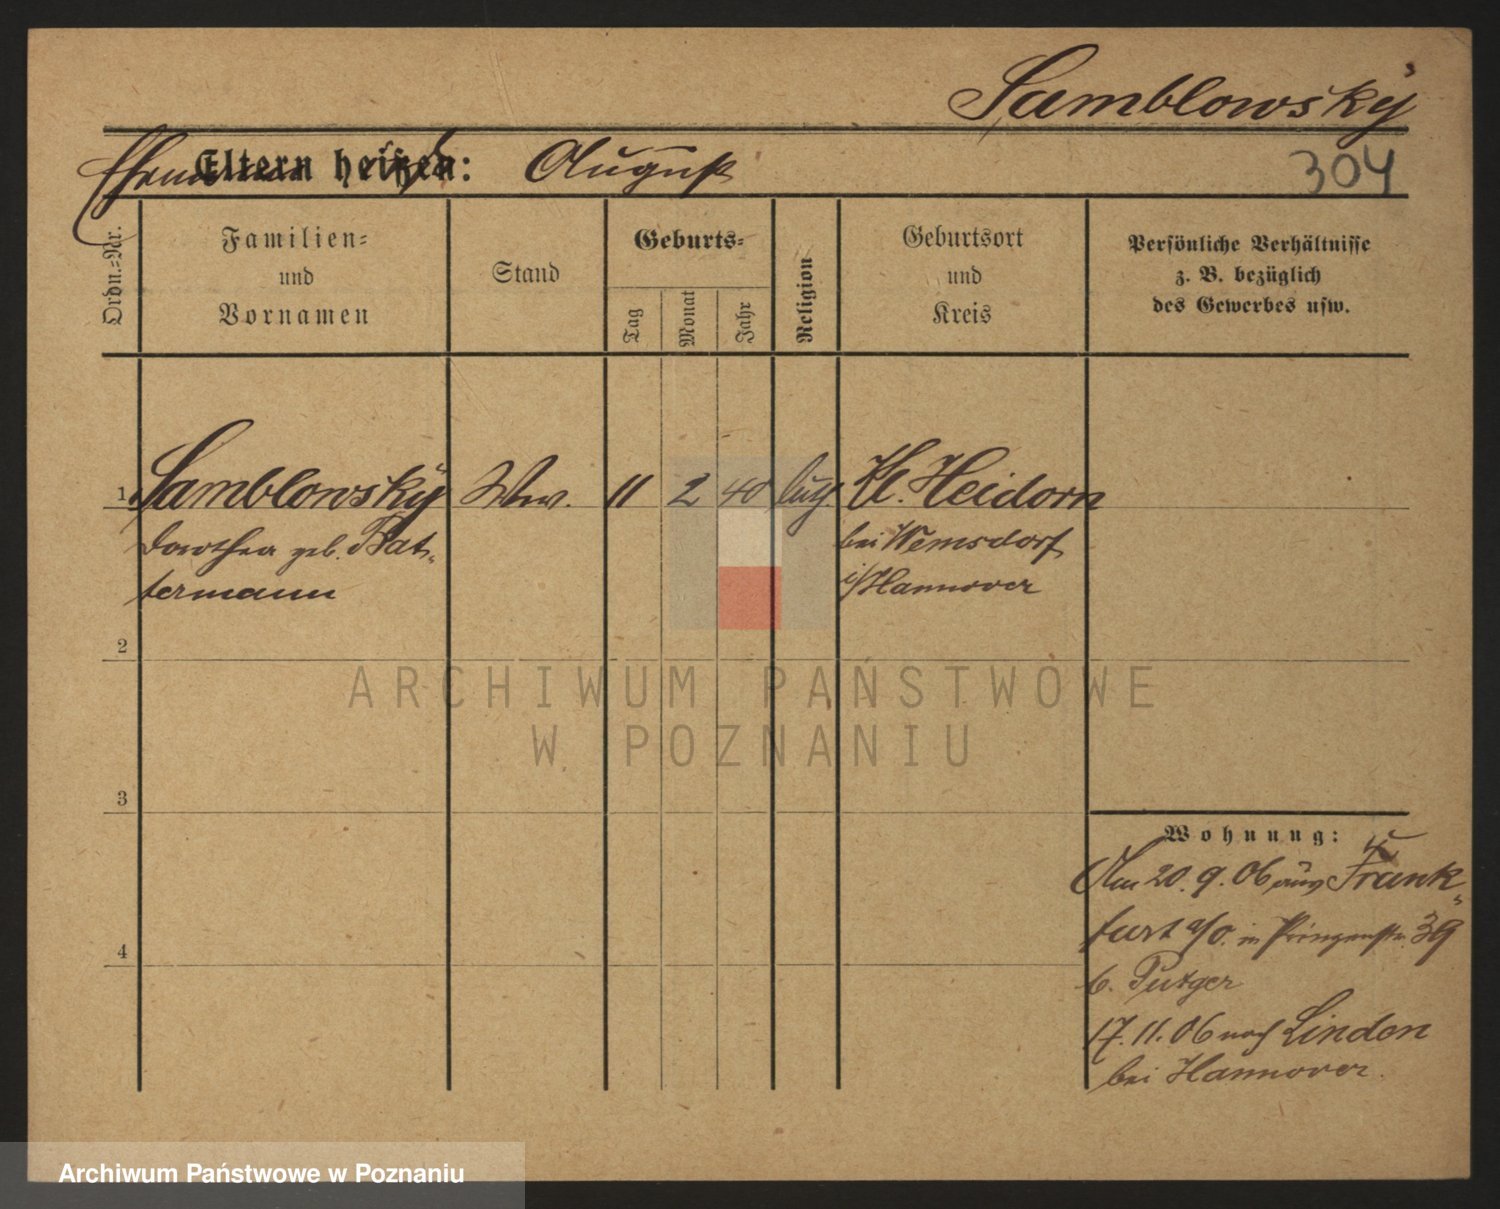 Samblowsky
Eltern heißen: August
304
Ordn.-Nr.
Familien-
und
Vornamen
Stand
Geburts-
Tag
Monat
Jahr
Religion
Geburtsort
und
Kreis
Persönliche Verhältnisse
z. B. bezüglich
des Gewerbes usw.
1 Samblowsky Ww. 11 2 40 luth. Kl. Heidorn
Dorothea geb. Bat-
termann
bei
i/Hannover
2
3
4
ARCHIWUM PAŃSTWOWE
W POZNANIU
Wohnung:
Am 20.9.06 aus Frank-
furt a/O. in Prinzenstr. 39
b. Putger
17.11.06 nach Linden
bei Hannover.
Archiwum Państwowe w Poznaniu